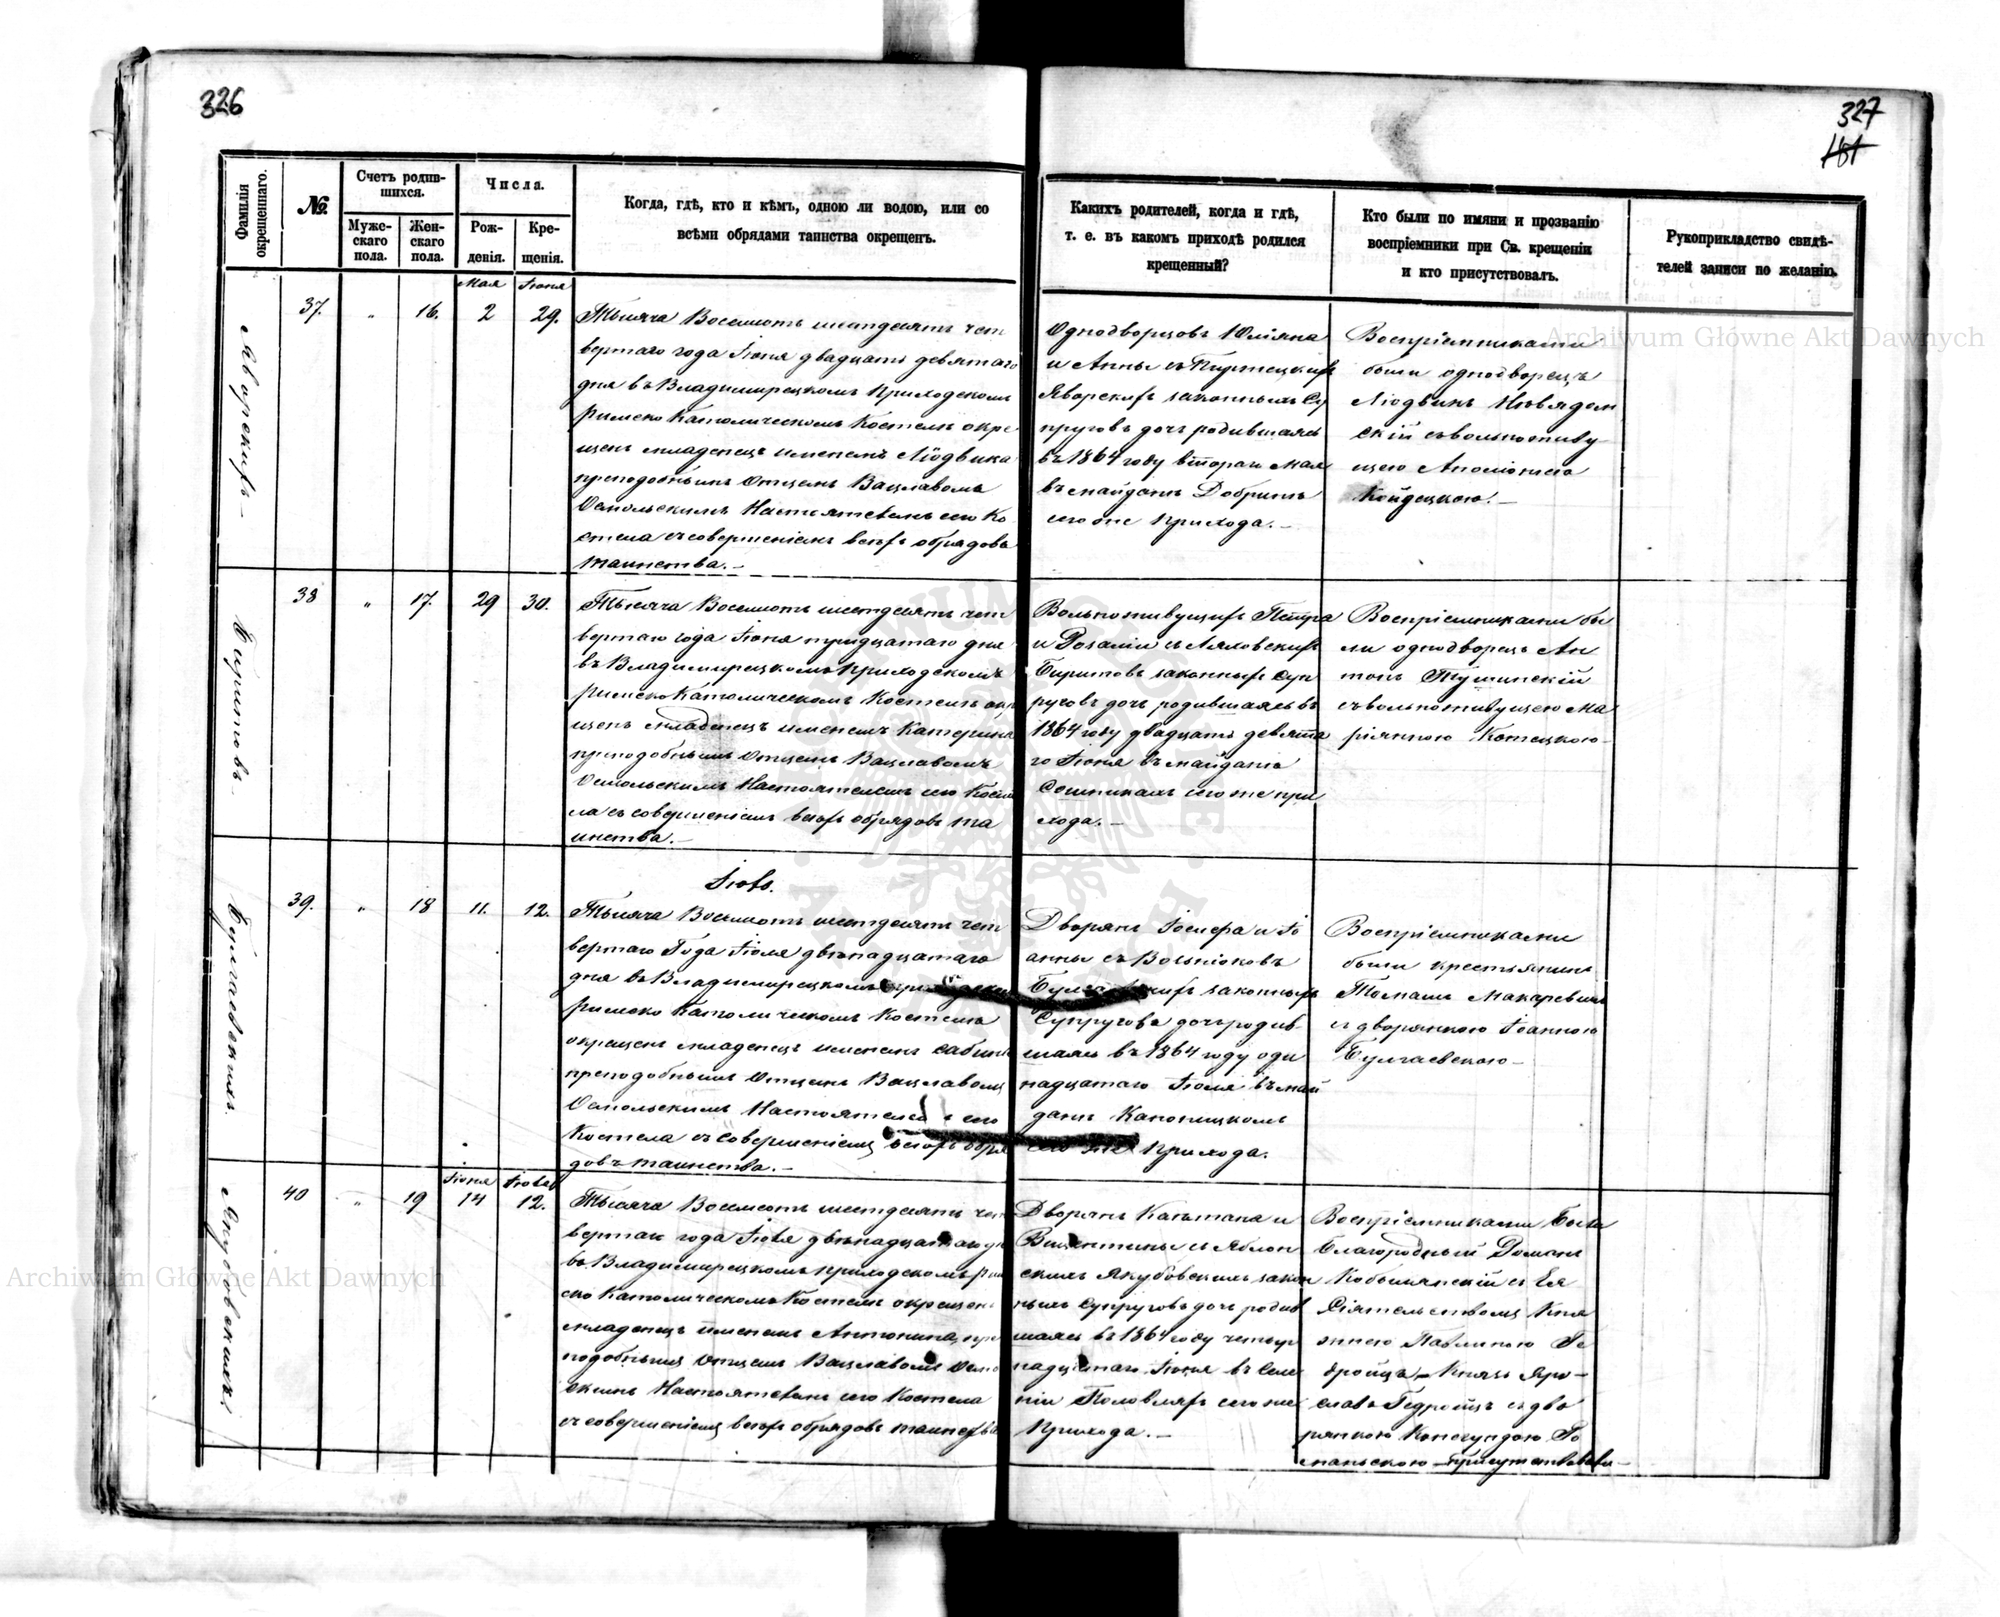 326
327
181
Фамилія окрещеннаго.
№.
Счетъ родив-
шихся.
Мужс-
скаго
пола.
Жен-
скаго
пола.
Числа.
Рож-
денія.
Кре-
щенія.
Когда, гдѣ, кто и кѣмъ, одною ли водою, или со
всѣми обрядами таинства окрещенъ.
Какихъ родителей, когда и гдѣ,
т. е. въ какомъ приходѣ родился
крещенный?
Кто были по имяни и прозванію
воспріемники при Св. крещеніи
и кто присутствовалъ.
Рукоприкладство свидѣ-
телей записи по желанію.
Яворскихъ
37.
"
16.
Мая
2
Іюня
29.
Тысяча Восемсотъ шестдесятъ чет
вертаго года Іюня двадцать девятаго
дня въ Владимирецкомъ Приходскомъ
Римско Католическомъ Костелѣ окре-
щенъ младенецъ именемъ Людвика
преподобнымъ Отцемъ Вацлавомъ
Осмольскимъ Настоятелемъ сего Ко
стела съ совершеніемъ всѣхъ обрядовъ
таинства.—
Однодворцовъ Юліяна
и Анны съ
Яворскихъ законныхъ Су
пруговъ дочь родившаяся
въ 1864 году втораго Мая
въ майданѣ Добринъ
сего же Прихода.—
Воспріемниками
были однодворецъ
Людвикъ
скій съ вольноживу-
щею Аполоніею
38
"
17.
29
30.
Тысяча Восемсотъ шестдесятъ чет
вертаго года Іюня тридцатаго дня
въ Владимирецкомъ Приходскомъ
Римско Католическомъ Костелѣ окре
щенъ младенецъ именемъ Катерина
преподобнымъ Отцемъ Вацлавомъ
Осмольскимъ Настоятелемъ сего Косте
ла съ совершеніемъ всѣхъ обрядовъ та
инства.—
Вольноживущихъ Петра
и Розаліи съ Ляховскихъ
законныхъ Суп
руговъ дочь родившаяся въ
1864 году двадцать девята
го Іюня въ майданѣ
сего же при
хода.—
Воспріемниками бы
ли однодворецъ Ан
тонъ Тушинскій
съ вольноживущею Ма
ріянною Котецкою—
Булгаевскихъ
39.
"
18
11.
12.
Іюль.
Тысяча Восемсотъ шестдесятъ чет
вертаго Года Іюля двѣнадцатаго
дня въ Владимирецкомъ приходском
Римско Католическомъ Костелѣ
окрещенъ младенецъ именемъ Сабина
преподобнымъ Отцемъ Вацлавомъ
Осмольскимъ Настоятелемъ сего
Костела съ совершеніемъ всѣхъ обря
довъ таинства.—
Дворянъ Іосифа и Іо
анны съ
законныхъ
Супруговъ дочь родив-
шаяся въ 1864 году оди
надцатаго Іюля въ май
данѣ Каноницкомъ
сего же Прихода.
Воспріемниками
были крестьянинъ
Томашъ Макаревичъ
съ дворянкою Іоанною
Булгаевскою—
Якубовскихъ
40
"
19
Іюня
14
Іюля
12.
Тысяча Восемсотъ шестдесятъ чет
вертаго года Іюля двѣнадцатаго дн
въ Владимирецкомъ приходскомъ Рим
ско Католическомъ Костелѣ окрещенъ
младенецъ именемъ Антонина пре
подобнымъ Отцемъ Вацлавомъ Осмо
скимъ Настоятелемъ сего Костела
съ совершеніемъ всѣхъ обрядовъ таинства
Дворянъ Каетана и
Викентины съ Яблон
скихъ Якубовскихъ закон
ныхъ Супруговъ дочь родив
шаяся въ 1864 году четыр
надцатаго Іюня въ Селе
ніи Половляхъ сего же
Прихода.—
Воспріемниками были
Благородный Романъ
Кобылянскій съ Ея
Сіятельствомъ Кня
жнею Павлиною Ге
дройцъ— Князь Яро-
славъ Гедройцъ съ дво
рянкою Конегундою Ро
манскою присутствовали—
Archiwum Główne Akt Dawnych
Archiwum Główne Akt Dawnych